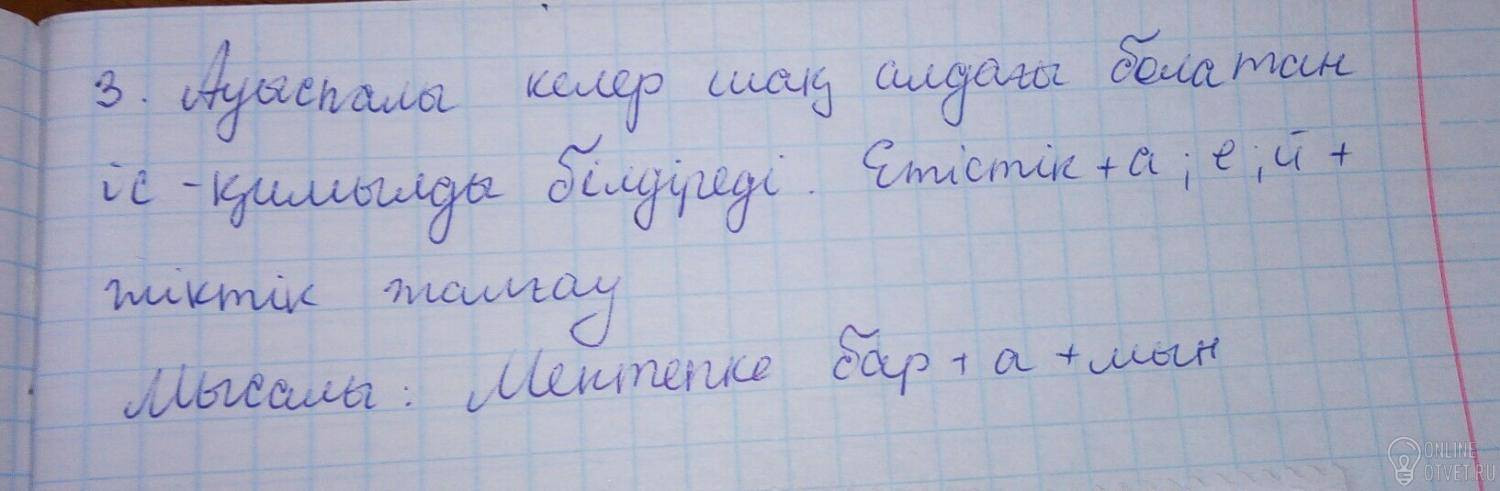 3. Ауыспалы келер шақ алдағы болатын
іс-қимылды білдіреді. Етістік + а ; е ; й +
жіктік жалғау
Мысалы : Мектепке бар + а + мын
ONLINE
OTVET.RU